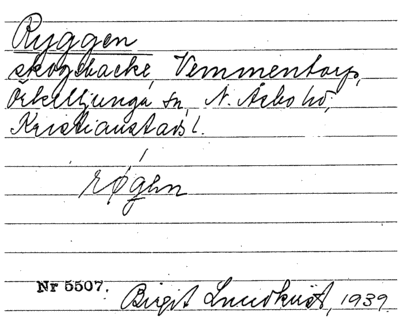 Ryggen
skogsbacke, Vemmentorp,
Örkelljunga sn, N. Åsbo hd,
Kristianstads l.
røgen
Nr 5507. Birgit Lundkvist, 1939.